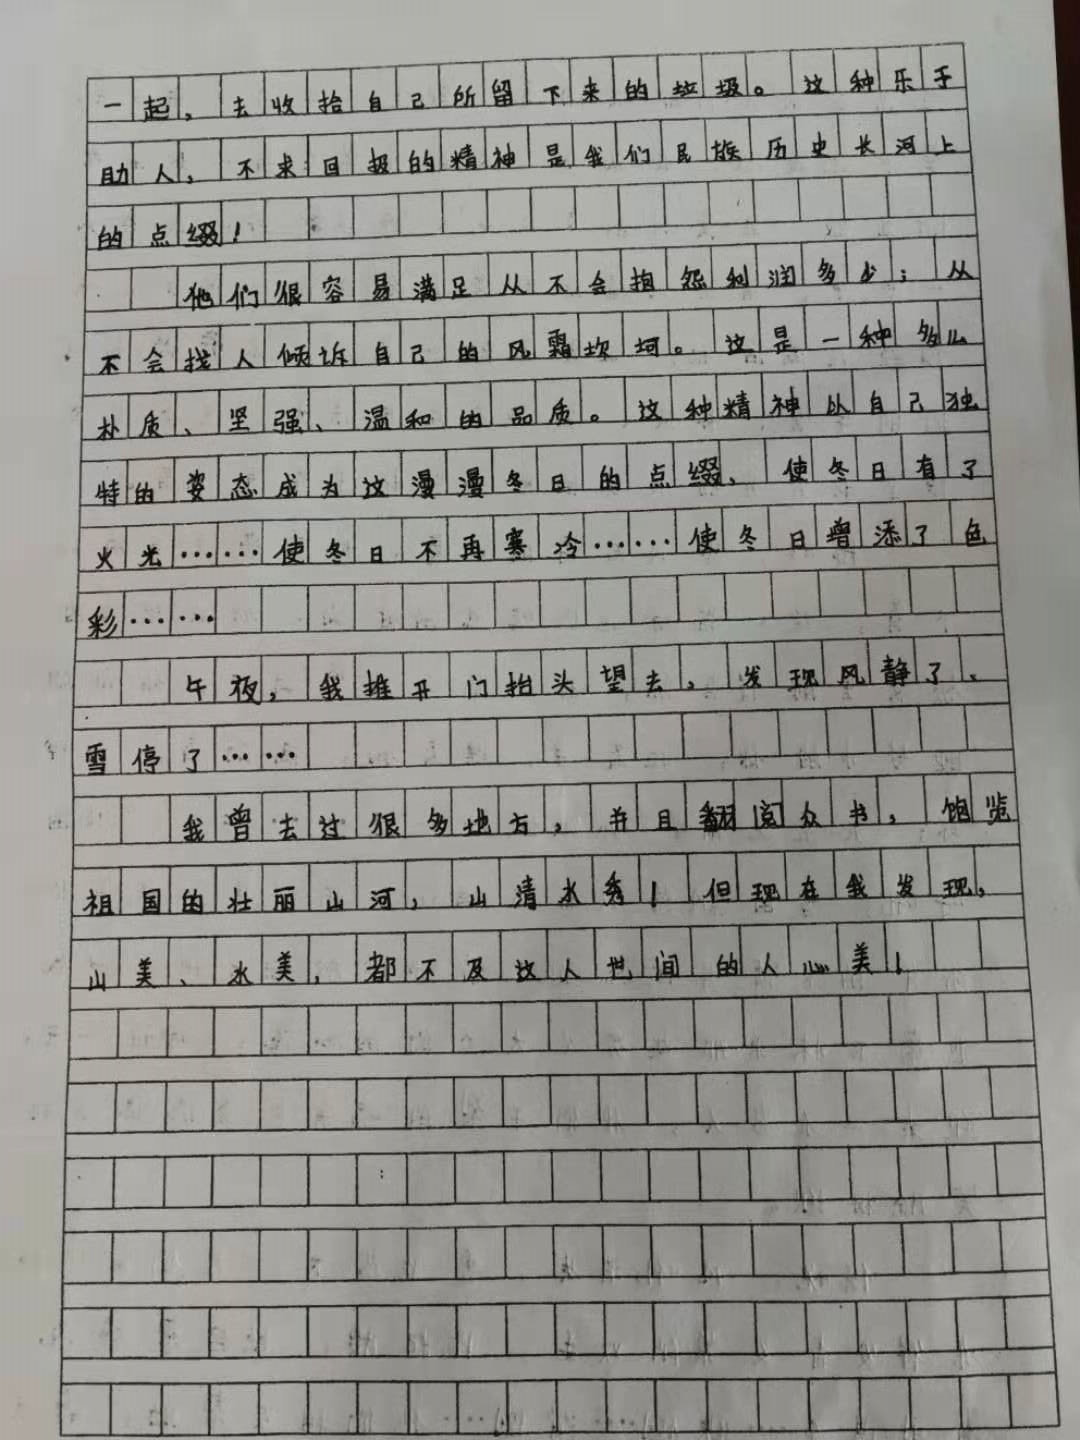 一起，去收拾自己所留下来的垃圾。这种乐于
助人，不求回报的精神是我们民族历史长河上
的点缀！
他们很容易满足从不会抱怨利润多少；从
不会找人倾诉自己的风霜坎坷。这是一种多么
朴质、坚强、温和的品质。这种精神以自己独
特的姿态成为这漫漫冬日的点缀、使冬日有了
火光……使冬日不再寒冷……使冬日增添了色
彩……
午夜，我推开门抬头望去，发现风静了、
雪停了……
我曾去过很多地方，并且翻阅众书，饱览
祖国的壮丽山河，山清水秀！但现在我发现，
山美、水美，都不及这人世间的人心美！